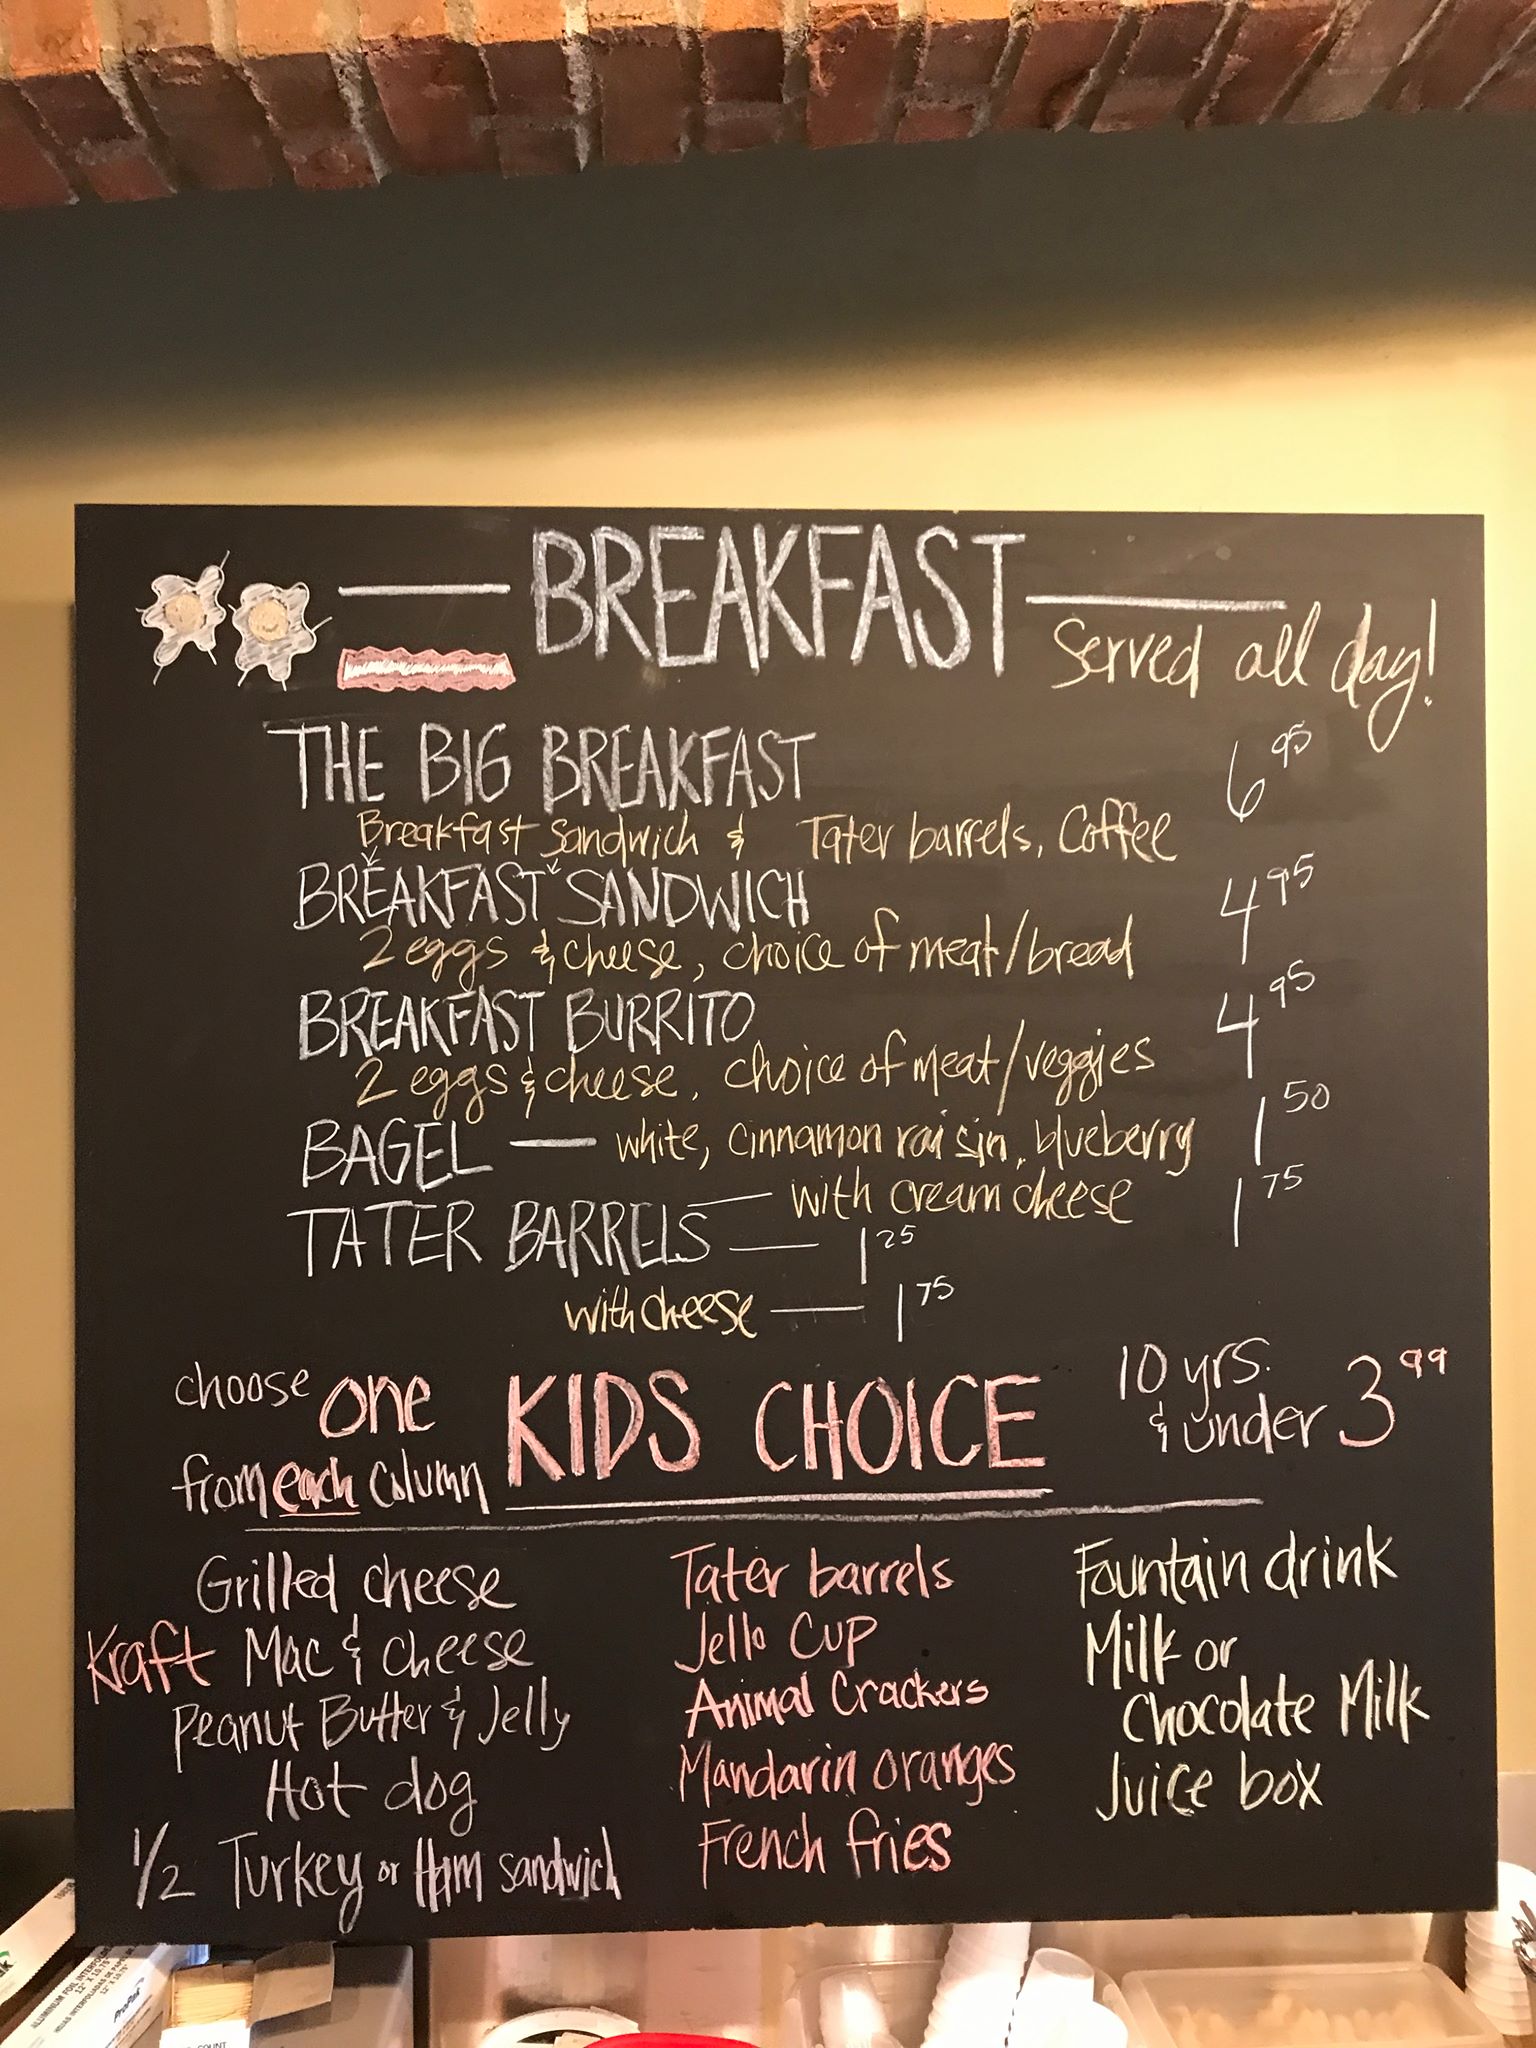 BREAKFAST
Served all day!
THE BIG BREAKFAST 6 95
Breakfast Sandwich & Tater barrels, Coffee
BREAKFAST SANDWICH 4 95
2 eggs & cheese, choice of meat/bread
BREAKFAST BURRITO 4 95
2 eggs & cheese, choice of meat/veggies
BAGEL — white, cinnamon raisin, blueberry 1 50
— with cream cheese 1 75
TATER BARRELS — 1 25
with cheese — 1 75
choose one
from each column
KIDS CHOICE
10 yrs.
& under 3 99
Grilled cheese
Kraft Mac & cheese
Peanut Butter & Jelly
Hot dog
1/2 Turkey or Ham sandwich
Tater barrels
Jello Cup
Animal Crackers
Mandarin oranges
French fries
Fountain drink
Milk or
Chocolate Milk
Juice box
12" X 10.75"
12" X 10.75"